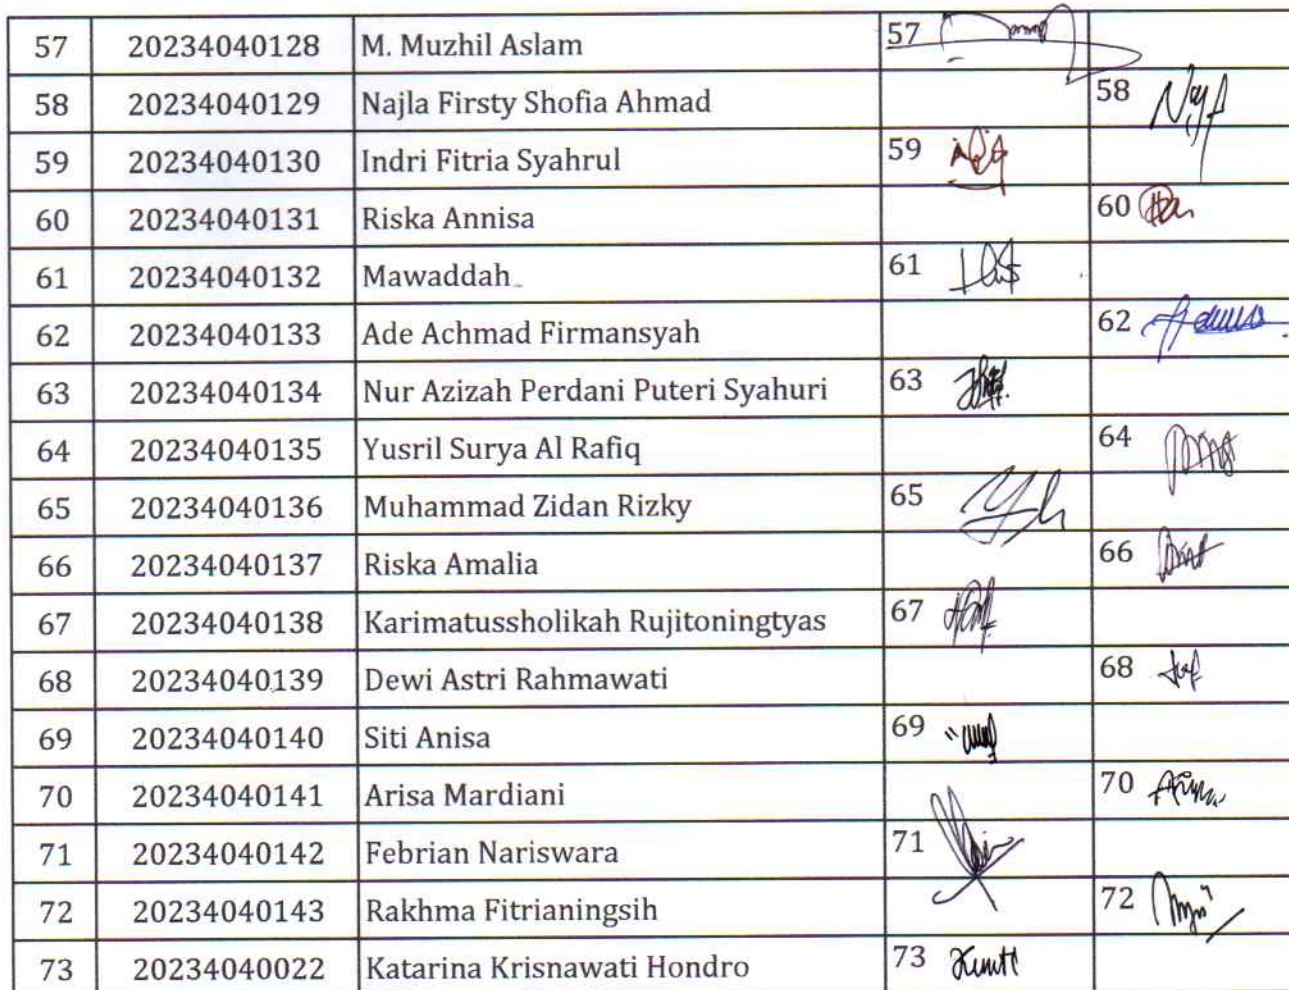 57 20234040128 M. Muzhil Aslam 57
58 20234040129 Najla Firsty Shofia Ahmad 58
59 20234040130 Indri Fitria Syahrul 59
60 20234040131 Riska Annisa 60
61 20234040132 Mawaddah 61
62 20234040133 Ade Achmad Firmansyah 62
63 20234040134 Nur Azizah Perdani Puteri Syahuri 63
64 20234040135 Yusril Surya Al Rafiq 64
65 20234040136 Muhammad Zidan Rizky 65
66 20234040137 Riska Amalia 66
67 20234040138 Karimatussholikah Rujitoningtyas 67
68 20234040139 Dewi Astri Rahmawati 68
69 20234040140 Siti Anisa 69
70 20234040141 Arisa Mardiani 70
71 20234040142 Febrian Nariswara 71
72 20234040143 Rakhma Fitrianingsih 72
73 20234040022 Katarina Krisnawati Hondro 73